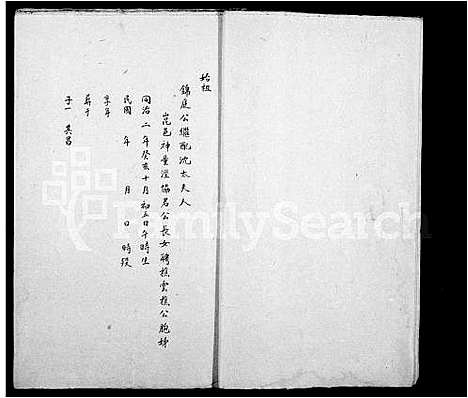 始祖
錦庭公繼配沈太夫人
崑邑神童涇協君公長女聘樵雲樵公胞姊
同治二年癸亥十月初五日午時生
民國 年 月 日 時歿
享年
葬于
子一 英昌
FamilySearch